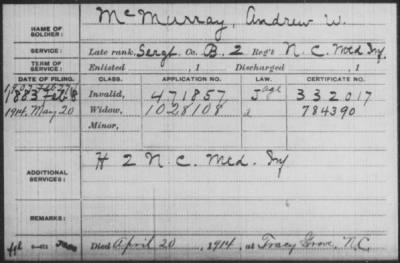 NAME OF SOLDIER: McMurray, Andrew W.
SERVICE: Late rank, Sergt Co. B, 2 Reg't N.C. Mtd Inf
TERM OF SERVICE: Enlisted , 1 Discharged , 1
DATE OF FILING. CLASS. APPLICATION NO. LAW. CERTIFICATE NO.
1883 Feb 8 Invalid, 471857 332017
1914, May 20 Widow, 1028108 784390
Minor,
ADDITIONAL SERVICES: H 2 N.C. Mtd. Inf
REMARKS:
Died April 20, 1914, at Tracy Grove, N.C.